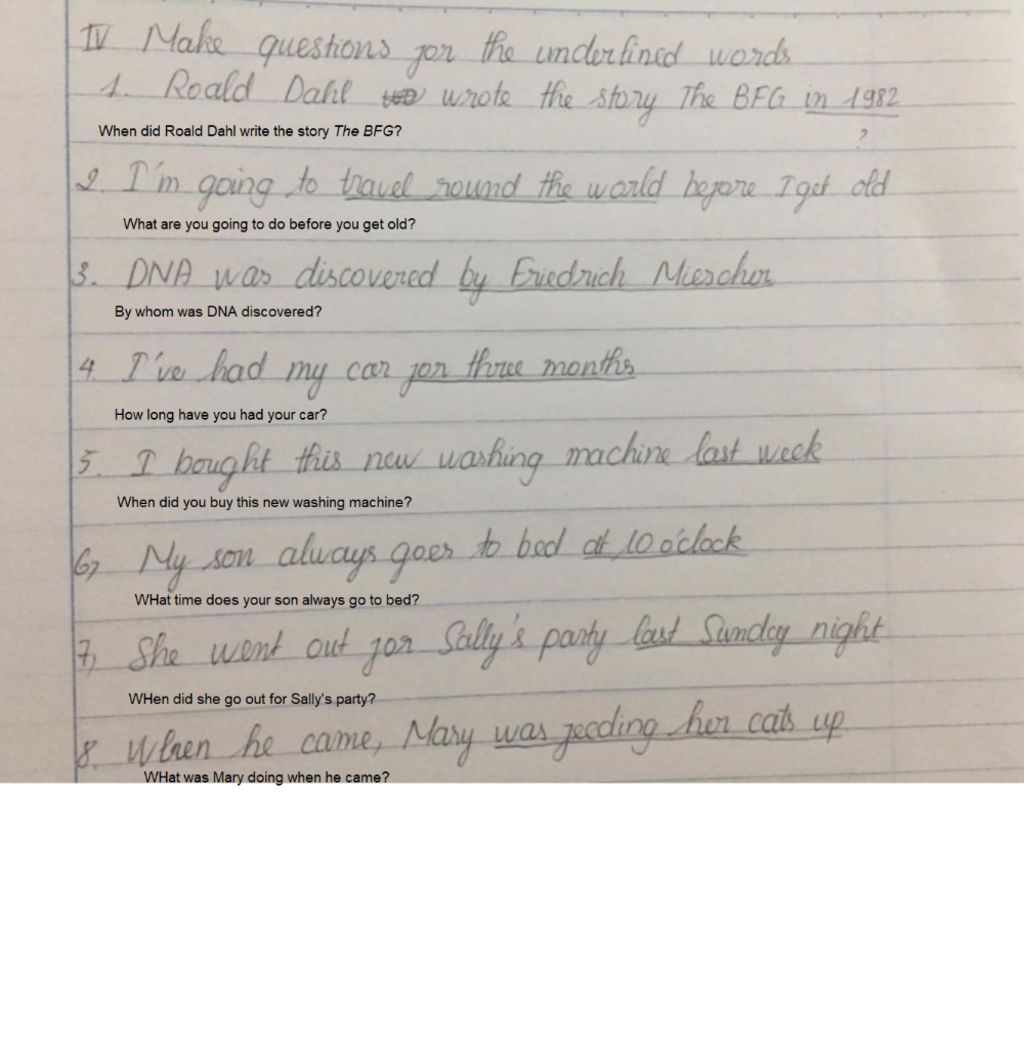 IV Make questions for the underlined words
1. Roald Dahl wrote the story The BFG in 1982
When did Roald Dahl write the story The BFG?
?
2. I'm going to travel round the world before I get old
What are you going to do before you get old?
3. DNA was discovered by Friedrich Miescher
By whom was DNA discovered?
4. I've had my car for three months
How long have you had your car?
5. I bought this new washing machine last week
When did you buy this new washing machine?
6, My son always goes to bed at 10 o'clock
WHat time does your son always go to bed?
7, She went out for Sally's party last Sunday night
WHen did she go out for Sally's party?
8. When he came, Mary was feeding her cats up
WHat was Mary doing when he came?